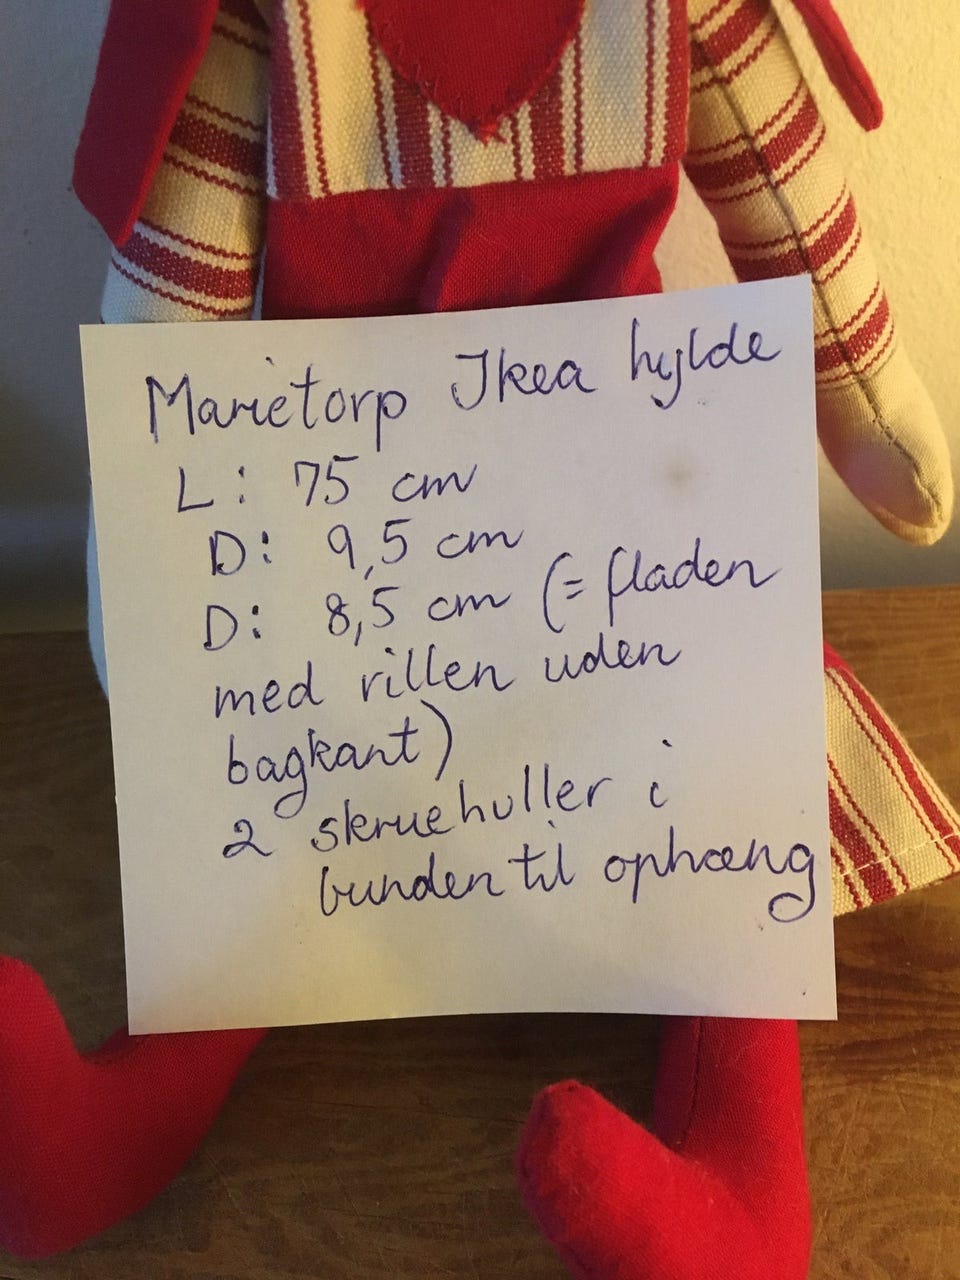 Marietorp Ikea hylde
L: 75 cm
D: 9,5 cm
D: 8,5 cm (= fladen
med rillen uden
bagkant)
2 skruehuller i
bunden til ophæng